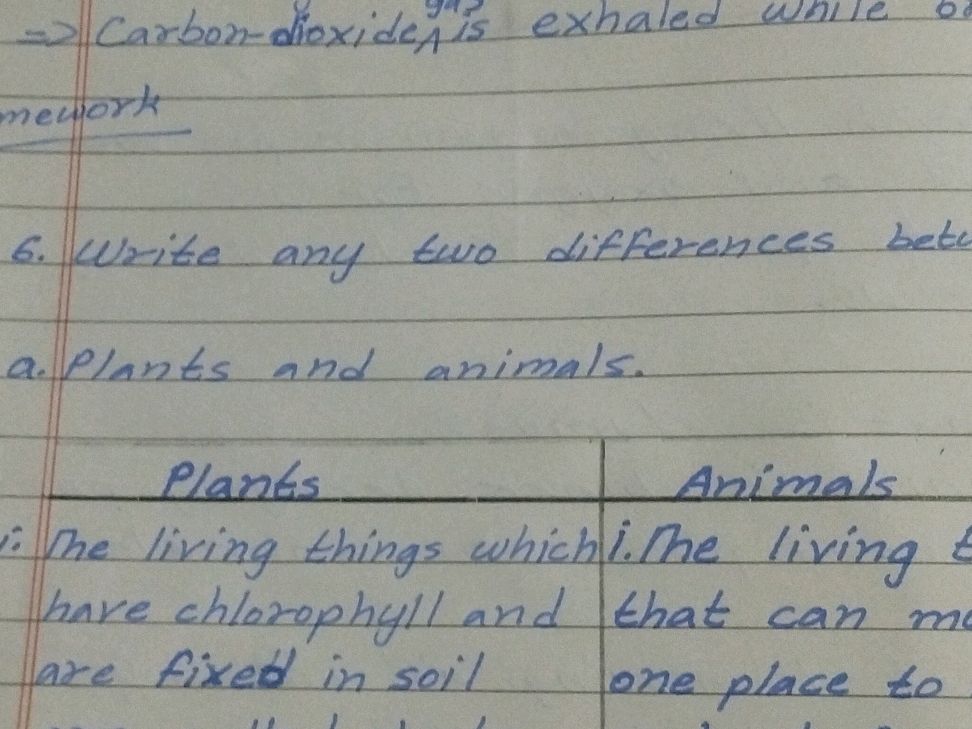 => Carbon-dioxide gas is exhaled while
mework
6. Write any two differences
a. Plants and animals.
Plants Animals
i. The living things which i. The living
have chlorophyll and that can
are fixed in soil one place to